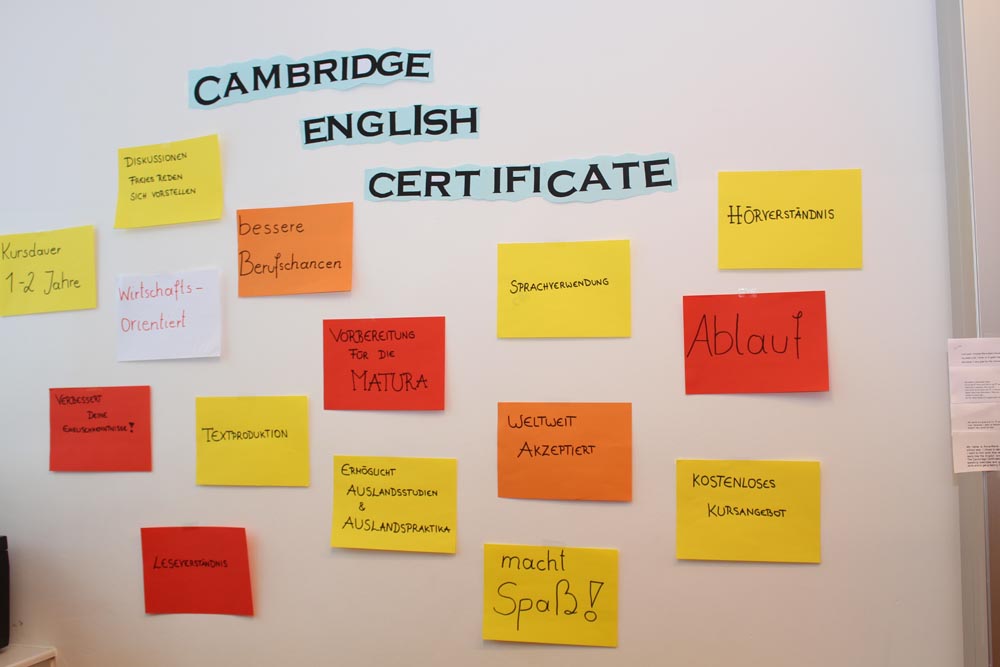 CAMBRIDGE
ENGLISH
CERTIFICATE
DISKUSSIONEN
FREIES REDEN
SICH VORSTELLEN
Kursdauer
1-2 Jahre
bessere
Berufschancen
Wirtschafts-
Orientiert
SPRACHVERWENDUNG
HÖRVERSTÄNDNIS
VORBEREITUNG
FÜR DIE
MATURA
Ablauf
VERBESSERT
DEINE
ENGLISCHKENNTNISSE!
TEXTPRODUKTION
WELTWEIT
AKZEPTIERT
ERMÖGLICHT
AUSLANDSSTUDIEN
&
AUSLANDSPRAKTIKA
KOSTENLOSES
KURSANGEBOT
LESEVERSTÄNDNIS
macht
Spaß!